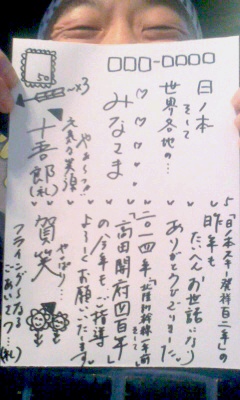 50
~×3
日ノ本
そして
世界各地の…
みなさま
やぁ〜
元気の笑顔
十吾郎
(礼)
「日本スキー発祥百二年」の
昨年も
たいへんお世話になり
ありがとうございました。
二〇一四年「北陸新幹線一年前」
そして
「高田開府四百年」
の今年もご指導
よろしくお願いいたします。
やっぱり…
賀笑
フライングとなる
ごあいさつ…(礼)